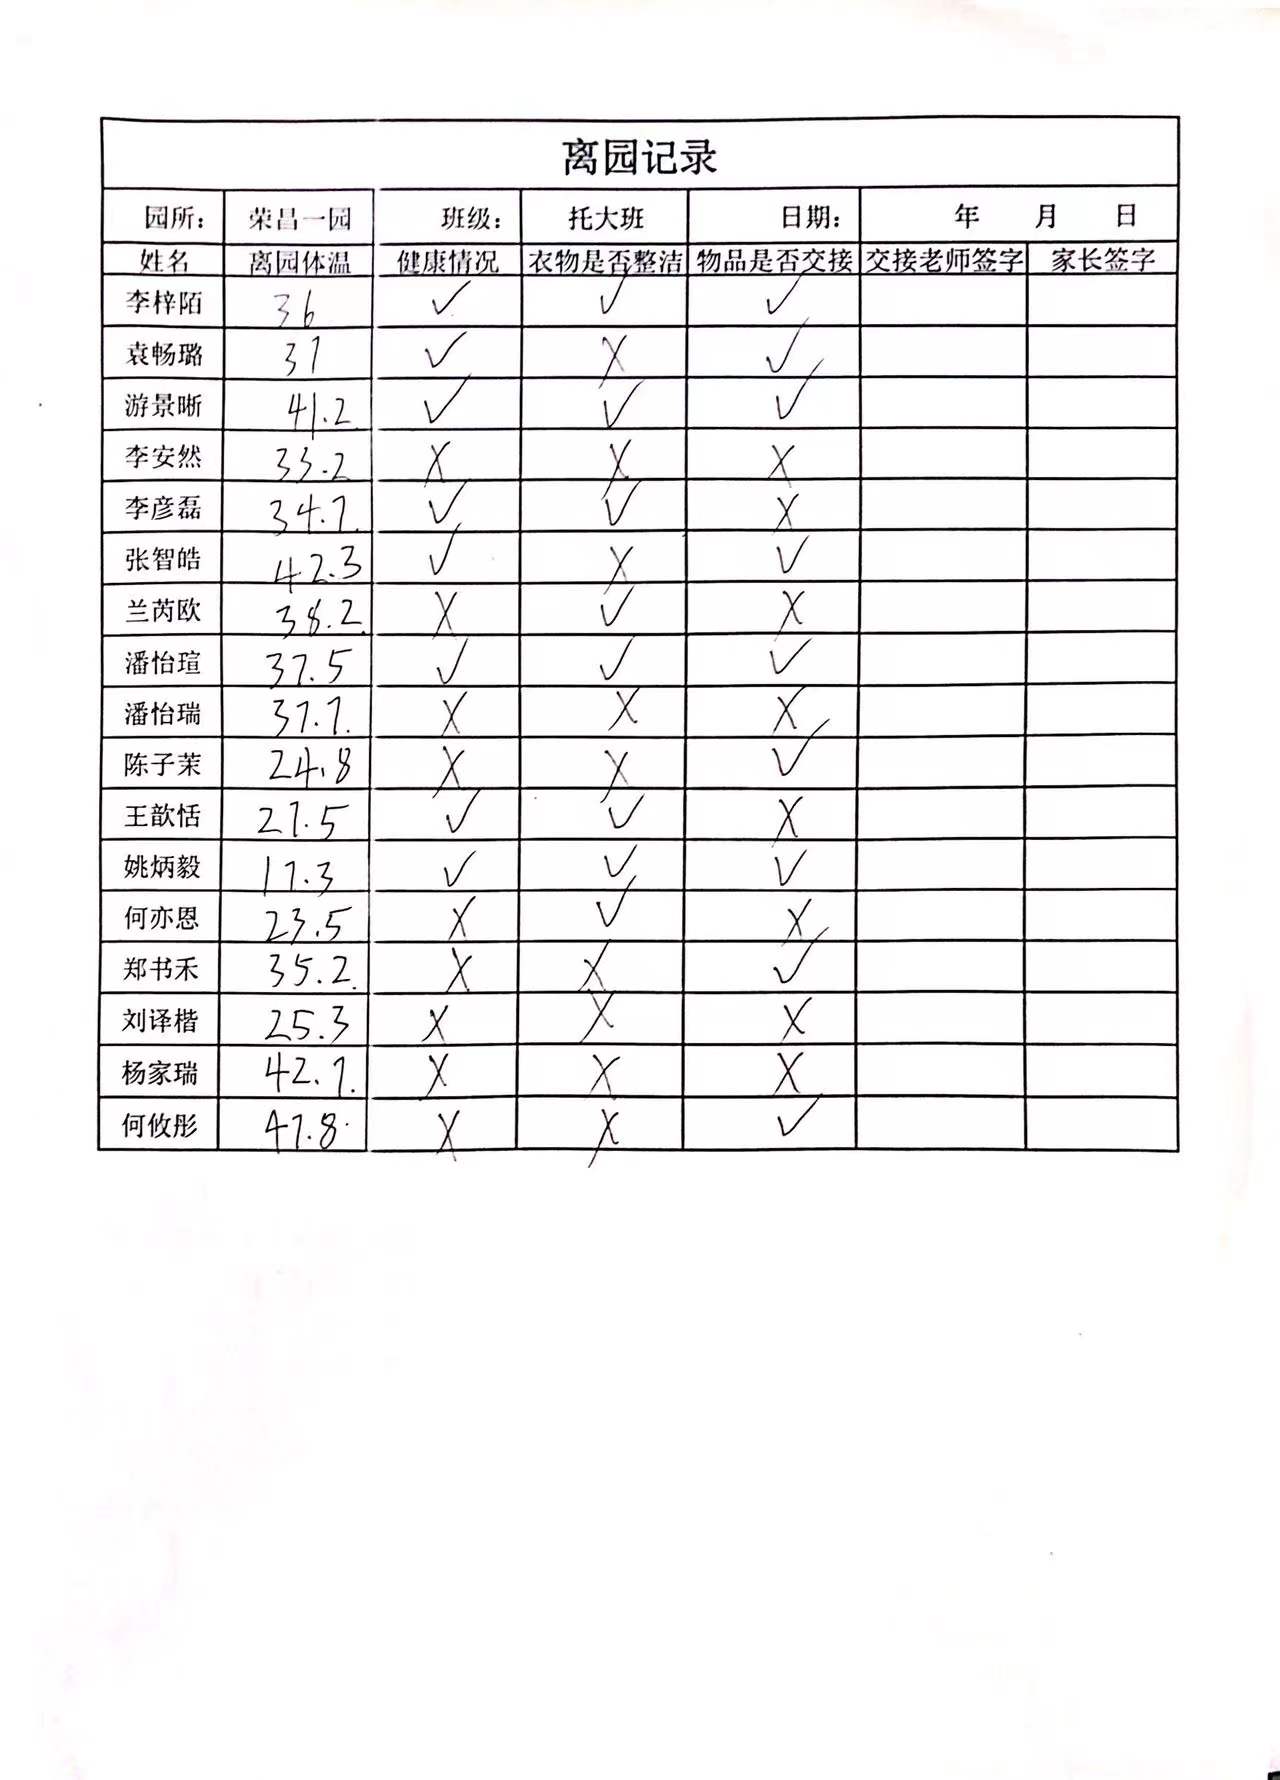 离园记录
园所： 荣昌一园 班级： 托大班 日期： 年 月 日
姓名 离园体温 健康情况 衣物是否整洁 物品是否交接 交接老师签字 家长签字
李梓陌 36 ✓ ✓ ✓
袁畅璐 37 ✓ X ✓
游景晰 41.2 ✓ ✓ ✓
李安然 33.2 X X X
李彦磊 34.7 ✓ ✓ X
张智皓 42.3 ✓ X ✓
兰芮欧 38.2 X ✓ X
潘怡瑄 37.5 ✓ ✓ ✓
潘怡瑞 37.7 X X X
陈子茉 24.8 X X ✓
王歆恬 27.5 ✓ ✓ X
姚炳毅 17.3 ✓ ✓ ✓
何亦恩 23.5 X ✓ X
郑书禾 35.2 X X ✓
刘译楷 25.3 X X X
杨家瑞 42.7 X X X
何攸彤 47.8 X X ✓